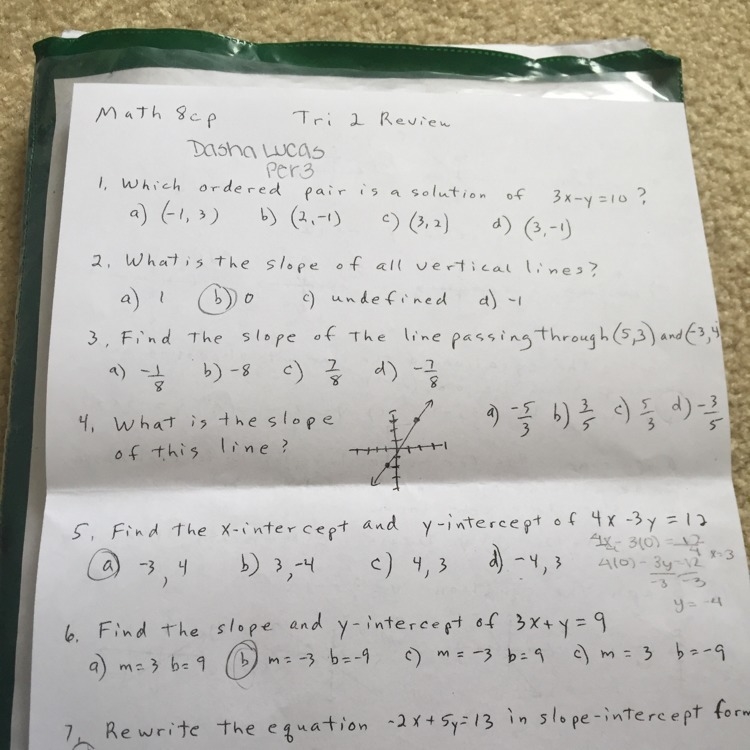 Math 8cp Tri 2 Review
Dasha Lucas
Per 3
1. Which ordered pair is a solution of 3x-y=10?
a) (-1, 3) b) (2,-1) c) (3,2) d) (3,-1)
2. What is the slope of all vertical lines?
a) 1 b) 0 c) undefined d) -1
3. Find the slope of the line passing through (5,3) and (-3,4
a) -1/8 b) -8 c) 7/8 d) -7/8
4. What is the slope
of this line?
a) -5/3 b) 3/5 c) 5/3 d) -3/5
5. Find the x-intercept and y-intercept of 4x-3y=12
4x-3(0)=12
4 x=3
a) -3, 4 b) 3,-4 c) 4,3 d) -4,3
4(0)-3y=12
-3 -3
y=-4
6. Find the slope and y-intercept of 3x+y=9
a) m=3 b=9 b) m=-3 b=-9 c) m=-3 b=9 c) m=3 b=-9
7. Rewrite the equation -2x+5y=13 in slope-intercept form